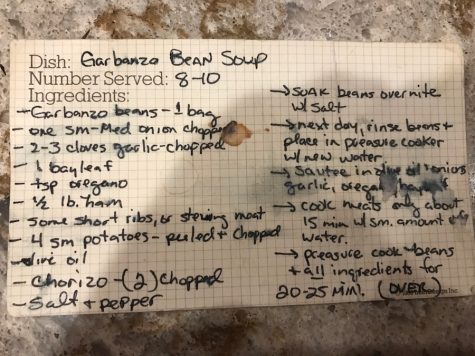 Dish: Garbanzo Bean Soup
Number Served: 8-10
Ingredients:
- Garbanzo beans - 1 bag
- one sm-Med onion chopped
- 2-3 cloves garlic-chopped
1 bayleaf
- tsp oregano
- 1/2 lb. ham
- some short ribs, or stewing meat
- 4 sm potatoes - peeled + chopped
olive oil
- Chorizo - (2) chopped
- Salt + pepper
→ soak beans overnite
w/ salt
→ next day, rinse beans +
place in preasure cooker
w/ new water
→ Sautee in olive oil onions
garlic, oregano bayleaf
→ cook meats only about
15 min w/ sm. amount of
water.
→ preasure cook beans
+ all ingredients for
20-25 MIN. (OVER)